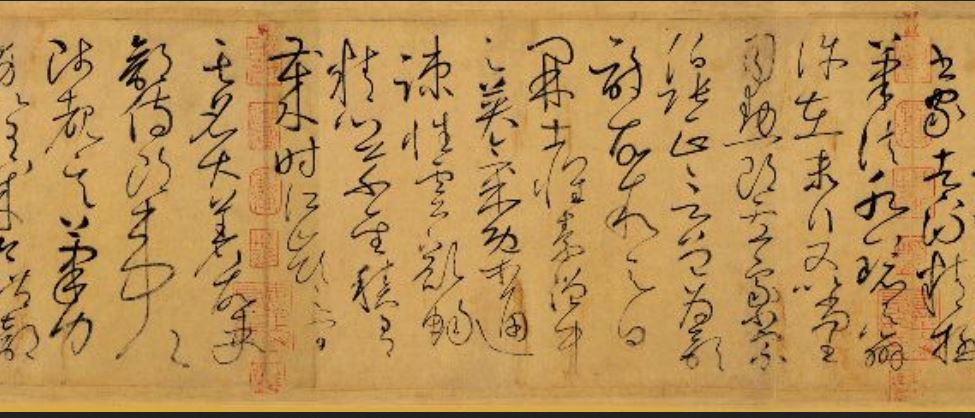 書家者流精極
筆法水鏡之辨
許在末行又以尚書
司勳郎盧象小宗
伯張正言曾為歌
詩故敘之曰
開士懷素僧中
之英氣概通
疎性靈豁暢
精心草聖積有
歲時江嶺之間
其名大著故吏
部侍郎韋公
陟覩其筆力